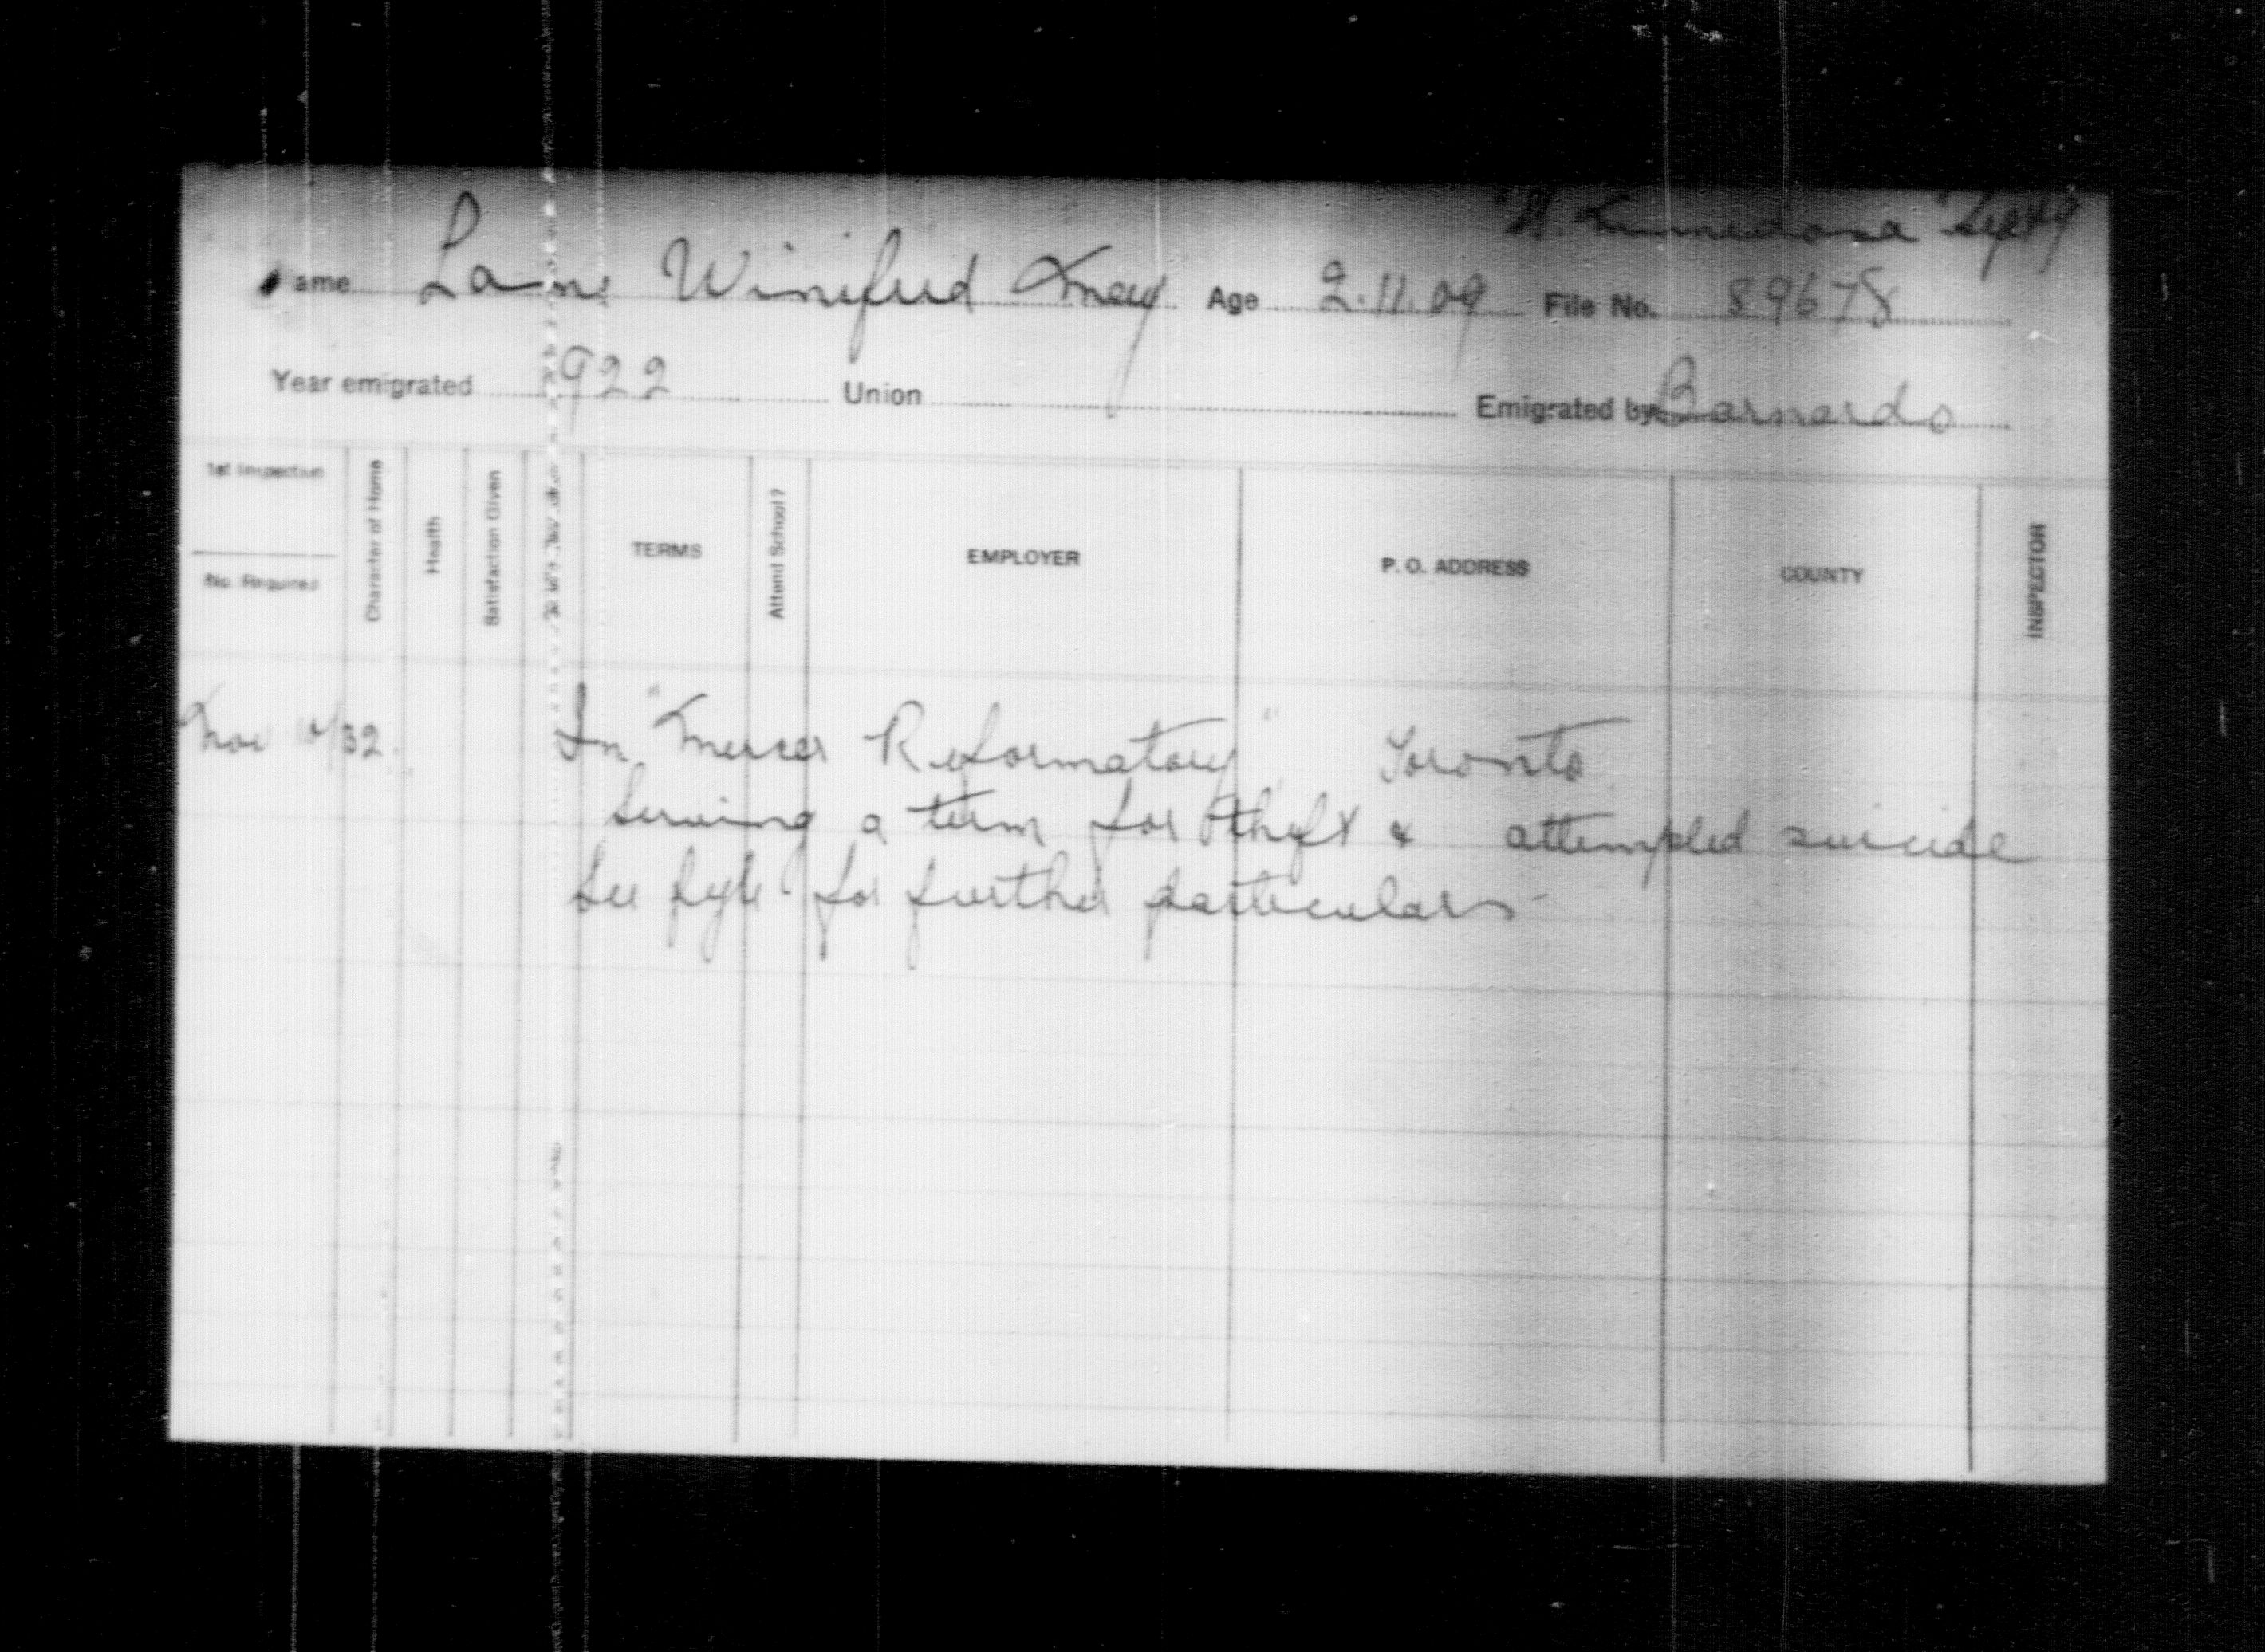 "M. Minnedosa" Sept 9
ame Lane Winifred May Age 2.11.09 File No. 89678
Year emigrated 1922 Union Emigrated by Barnardo
1st Inspection
No. Requires
Character of Home
Health
Satisfaction Given
TERMS
Attend School?
EMPLOYER
P. O. ADDRESS
COUNTY
INSPECTOR
Nov 10/32. In "Mercer Reformatory" Toronto
Serving a term for theft & attempted suicide
See fyle for further particulars